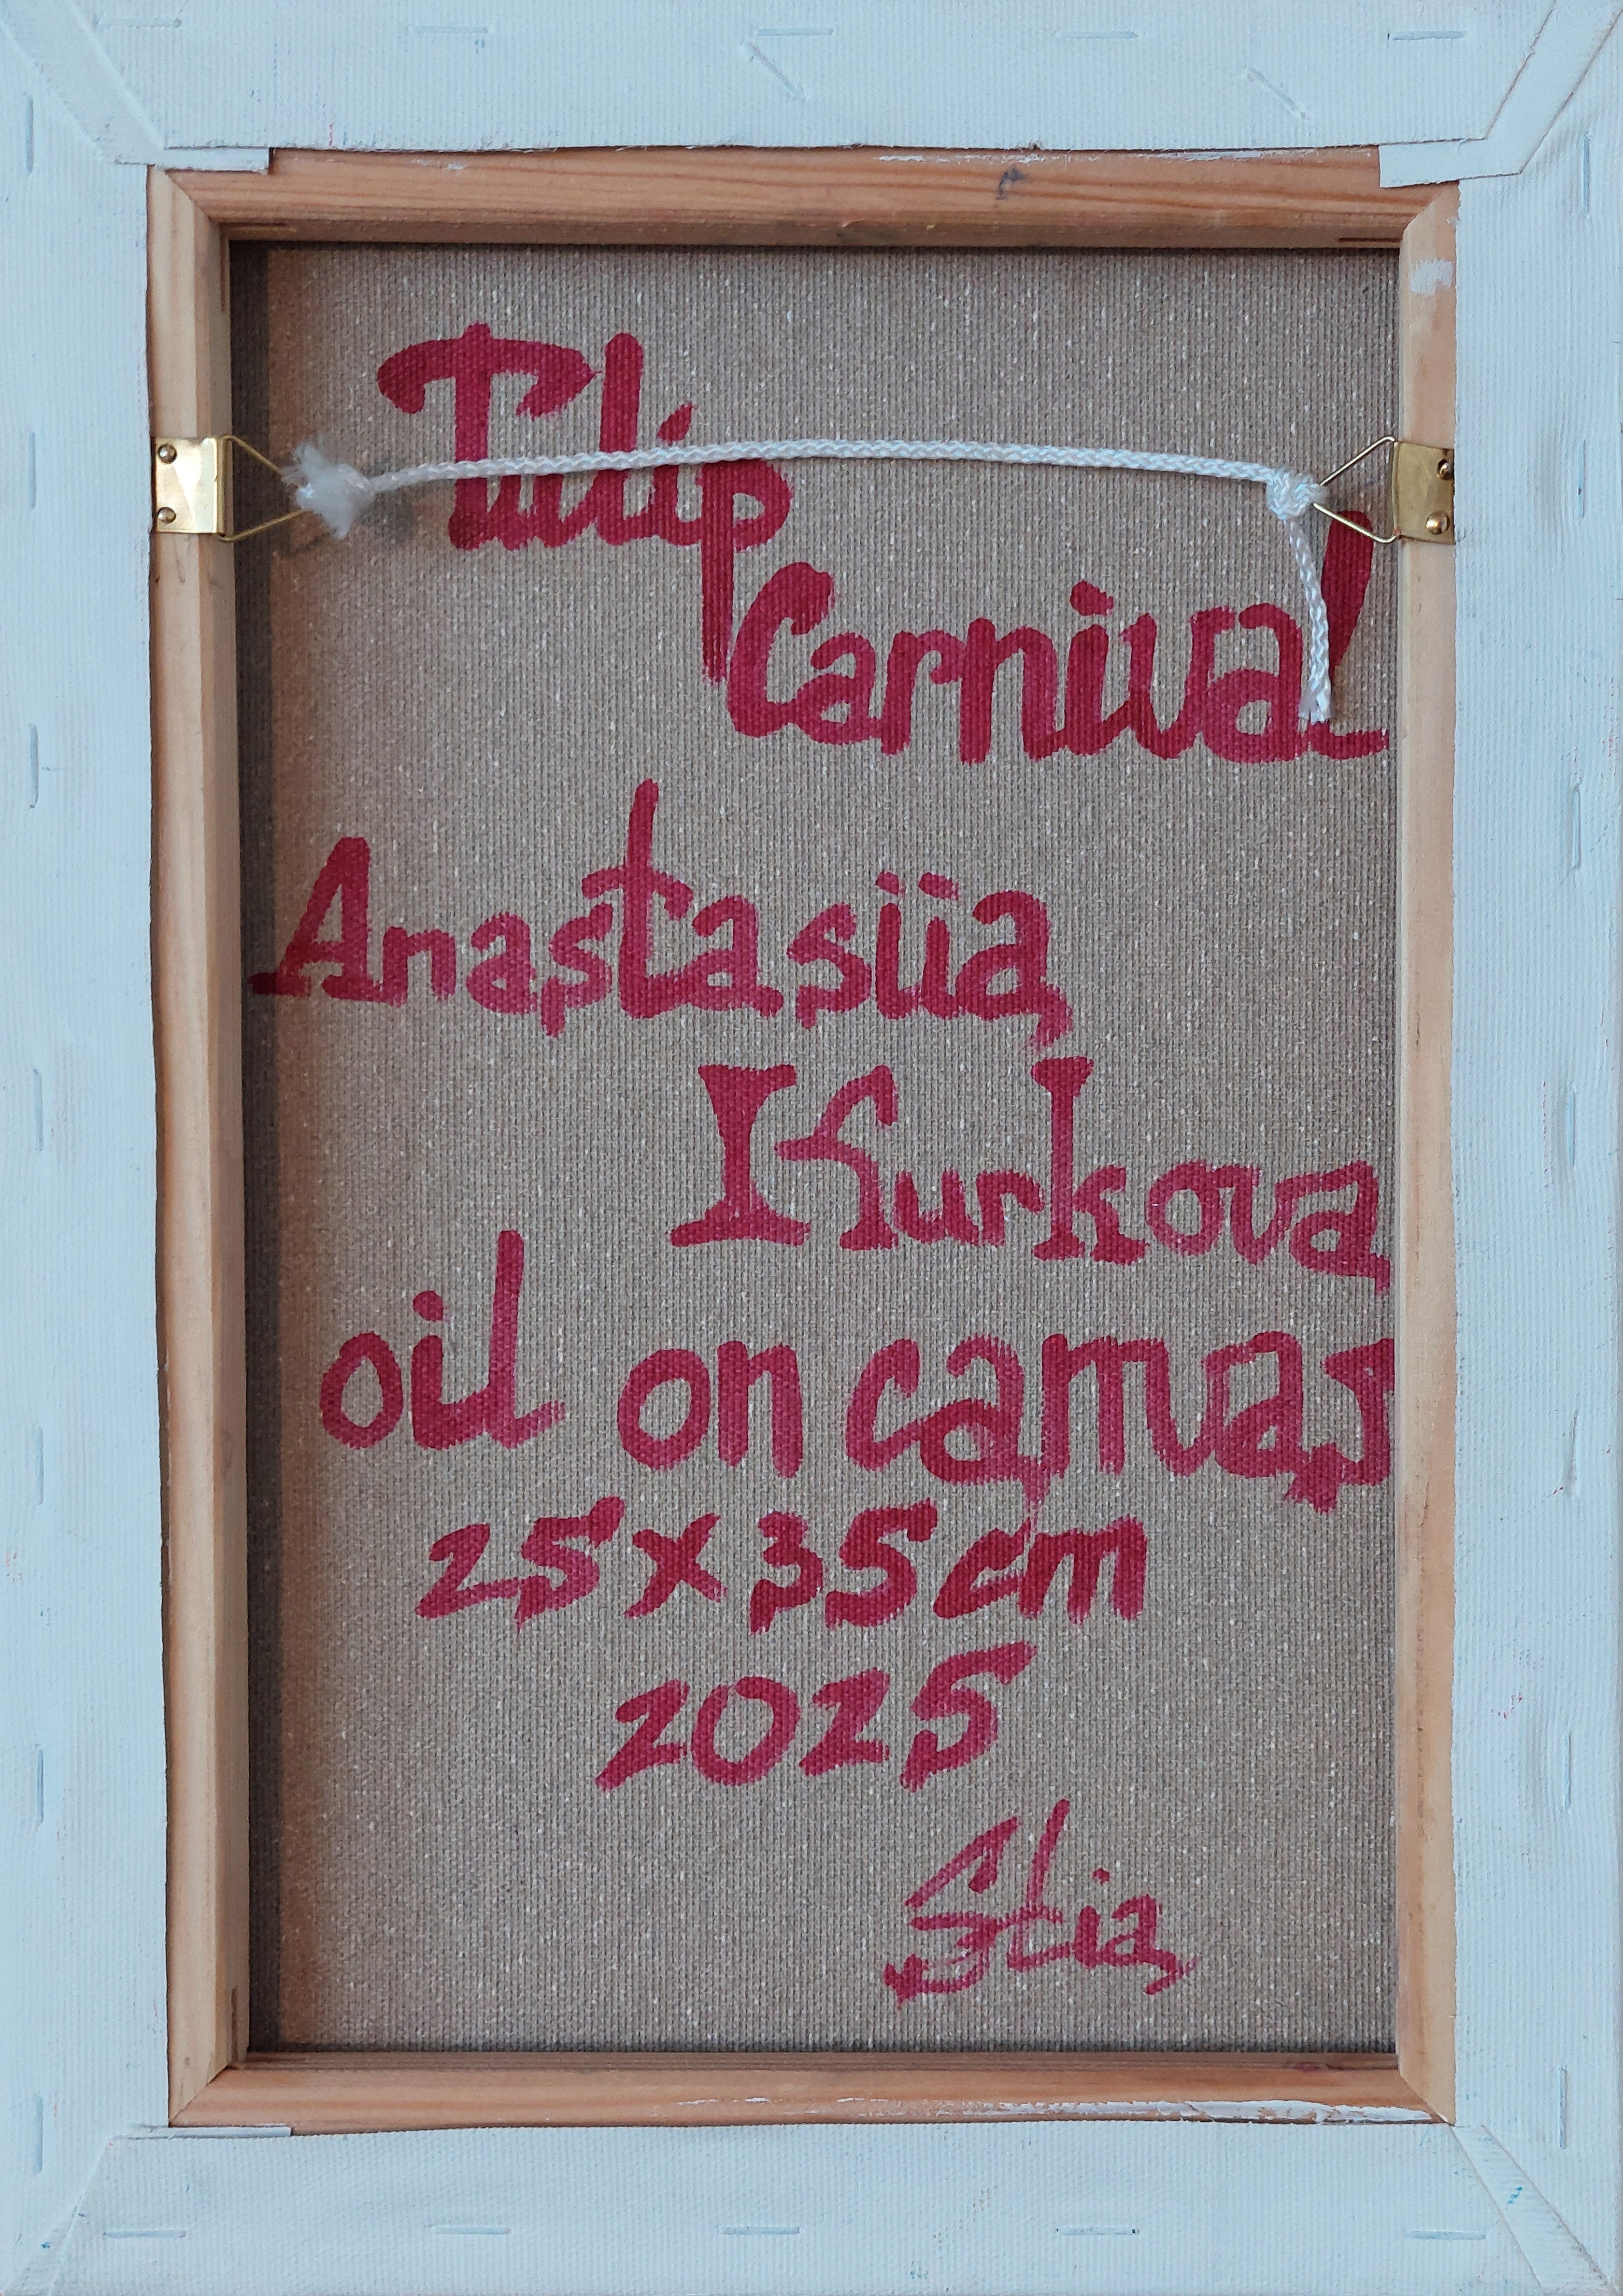 Tulip
Carnival
Anastasiia
Kurkova
oil on canvas
25x35cm
2025